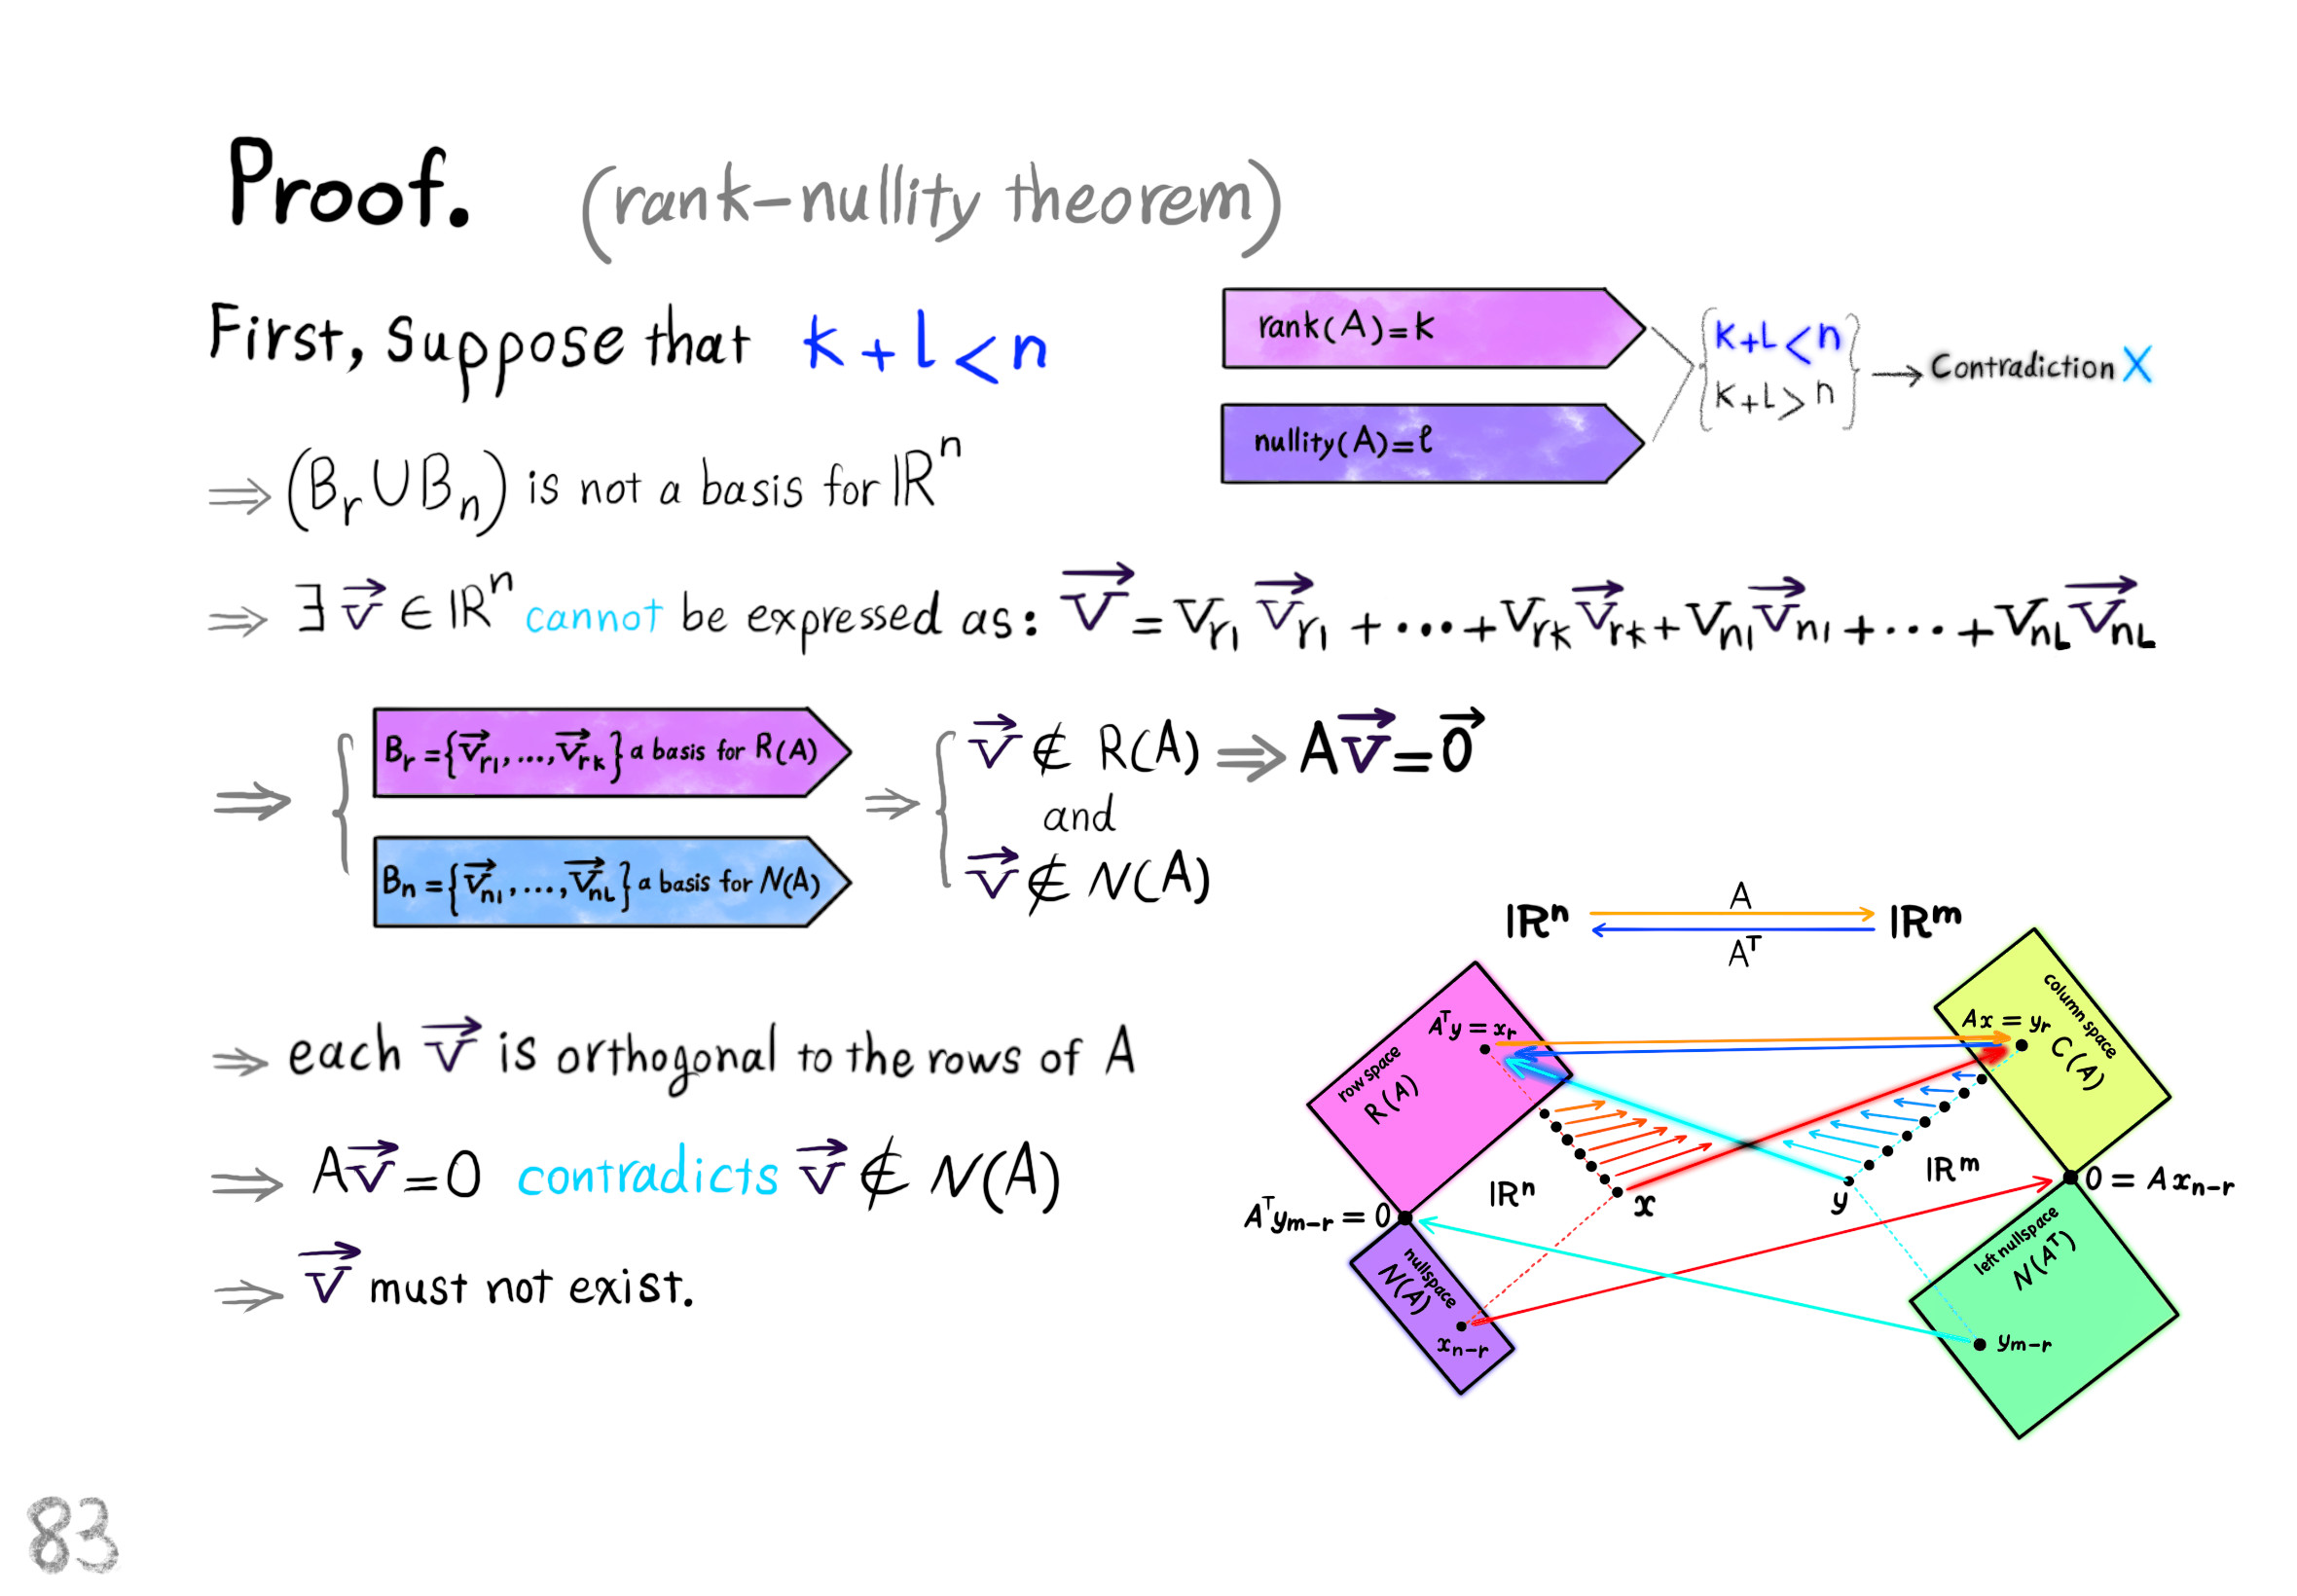 Proof. (rank-nullity theorem)
First, suppose that k+l<n
rank(A)=k
nullity(A)=ℓ
k+l<n
k+l>n
→ Contradiction X
⇒ (Br ∪ Bn) is not a basis for ℝⁿ
⇒ ∃ v⃗ ∈ ℝⁿ cannot be expressed as: v⃗ = Vr1 v⃗r1 + ··· + Vrk v⃗rk + Vn1 v⃗n1 + ··· + VnL v⃗nL
⇒ { Br = {v⃗r1, ..., v⃗rk} a basis for R(A)
Bn = {v⃗n1, ..., v⃗nL} a basis for N(A)
⇒ { v⃗ ∉ R(A) ⇒ Av⃗ = 0⃗
and
v⃗ ∉ N(A)
⇒ each v⃗ is orthogonal to the rows of A
⇒ Av⃗ = 0 contradicts v⃗ ∉ N(A)
⇒ v⃗ must not exist.
ℝⁿ A ℝᵐ
Aᵀ
Aᵀy = xr
row space
R(A)
Ax = yr
column space
C(A)
ℝⁿ
ℝᵐ
x
y
Aᵀym-r = 0
0 = Axn-r
nullspace
N(A)
xn-r
left nullspace
N(Aᵀ)
ym-r
83